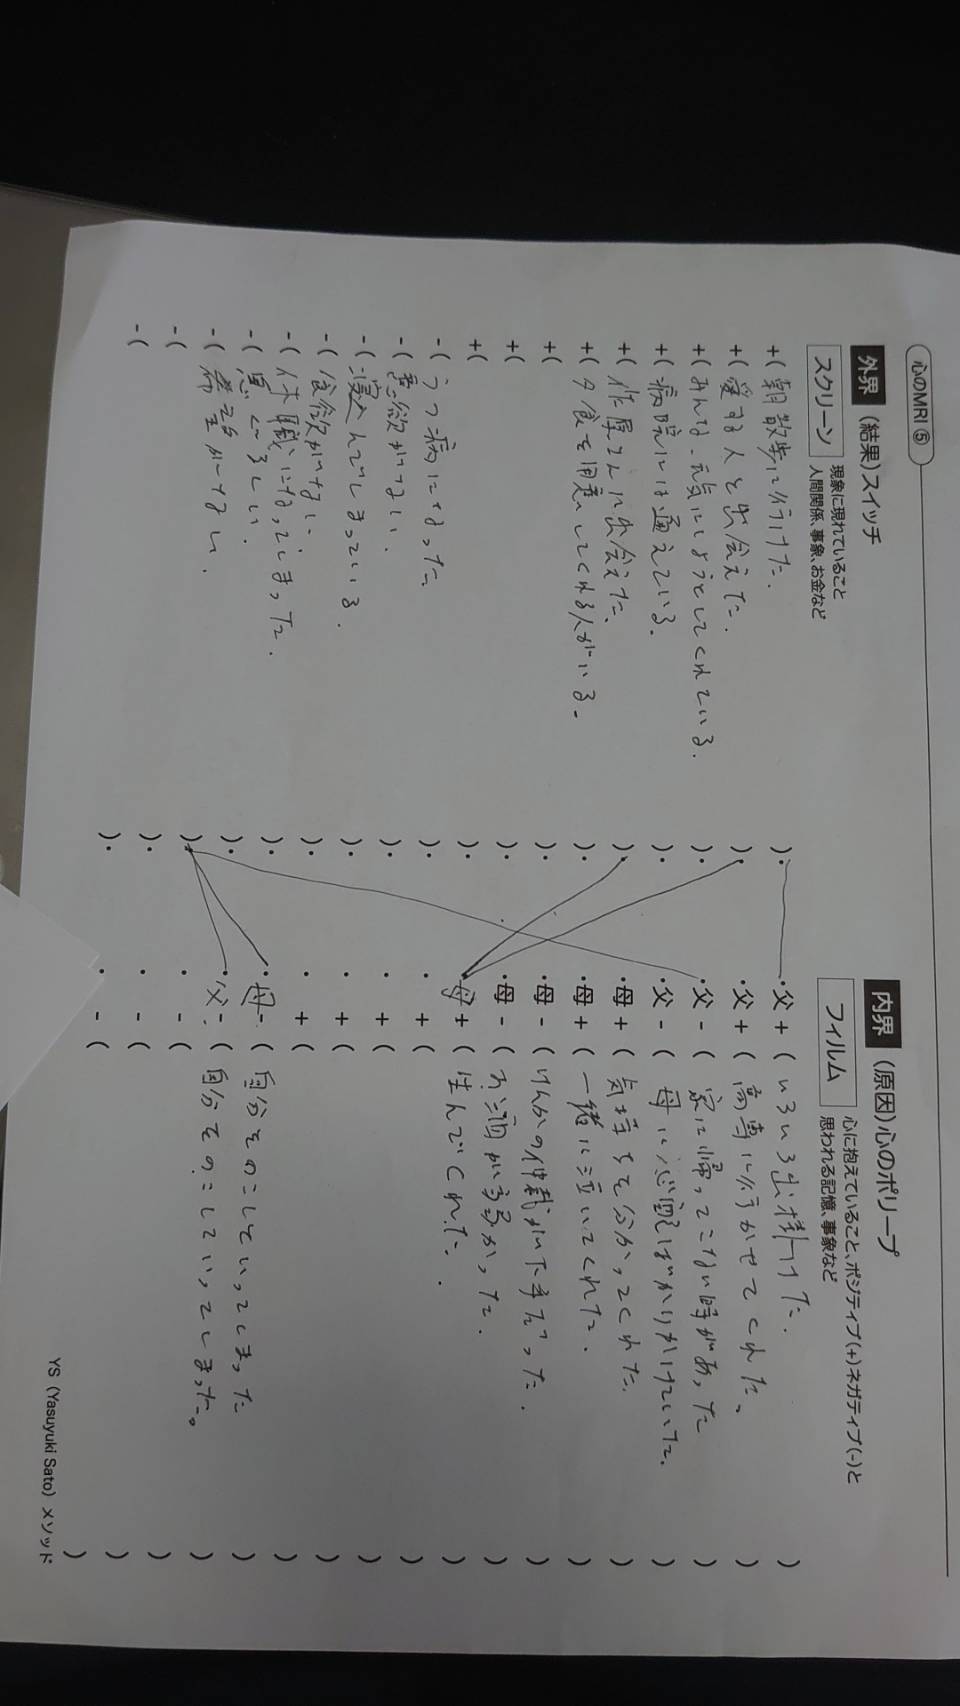 心のMRI ⑤
外界 (結果)スイッチ
スクリーン
現象に現れていること
人間関係、事象、お金など
+( 朝散歩に行けた. ).
+( 愛する人と出会えた. ).
+( みんな、元気にしようとしてくれている. ).
+( 病院には通えている. ).
+( 作厚さんに出会えた. ).
+( 夕食を用意してくれる人がいる. ).
+( ).
+( ).
+( ).
-( うつ病になった ).
-( 意欲がない. ).
-( 凝んでしまっている. ).
-( 食欲がない ).
-( 休職になってしまった. ).
-( 息くるしい. ).
-( 希望がない. ).
-( ).
-( ).
内界 (原因)心のポリープ
フィルム
心に抱えていること、ポジティブ(+)ネガティブ(-)と
思われる記憶、事象など
・父 + ( いろいろ出掛けた. )
・父 + ( 高専に行かせてくれた、 )
・父 - ( 家に帰ってこない時があった )
・父 - ( 母に心配ばかりかけていた. )
・母 + ( 気持ちを分かってくれた. )
・母 + ( 一緒に泣いてくれた. )
・母 - ( けんかの仲裁が下手だった. )
・母 - ( お酒が弱かった. )
・母 + ( 生んでくれた. )
・ + ( )
・ + ( )
・ + ( )
・ + ( )
・母 - ( 自分そのこしていってしまった )
・父 - ( 自分そのこしていってしまった。 )
・ - ( )
・ - ( )
・ - ( )
YS (Yasuyuki Sato) メソッド